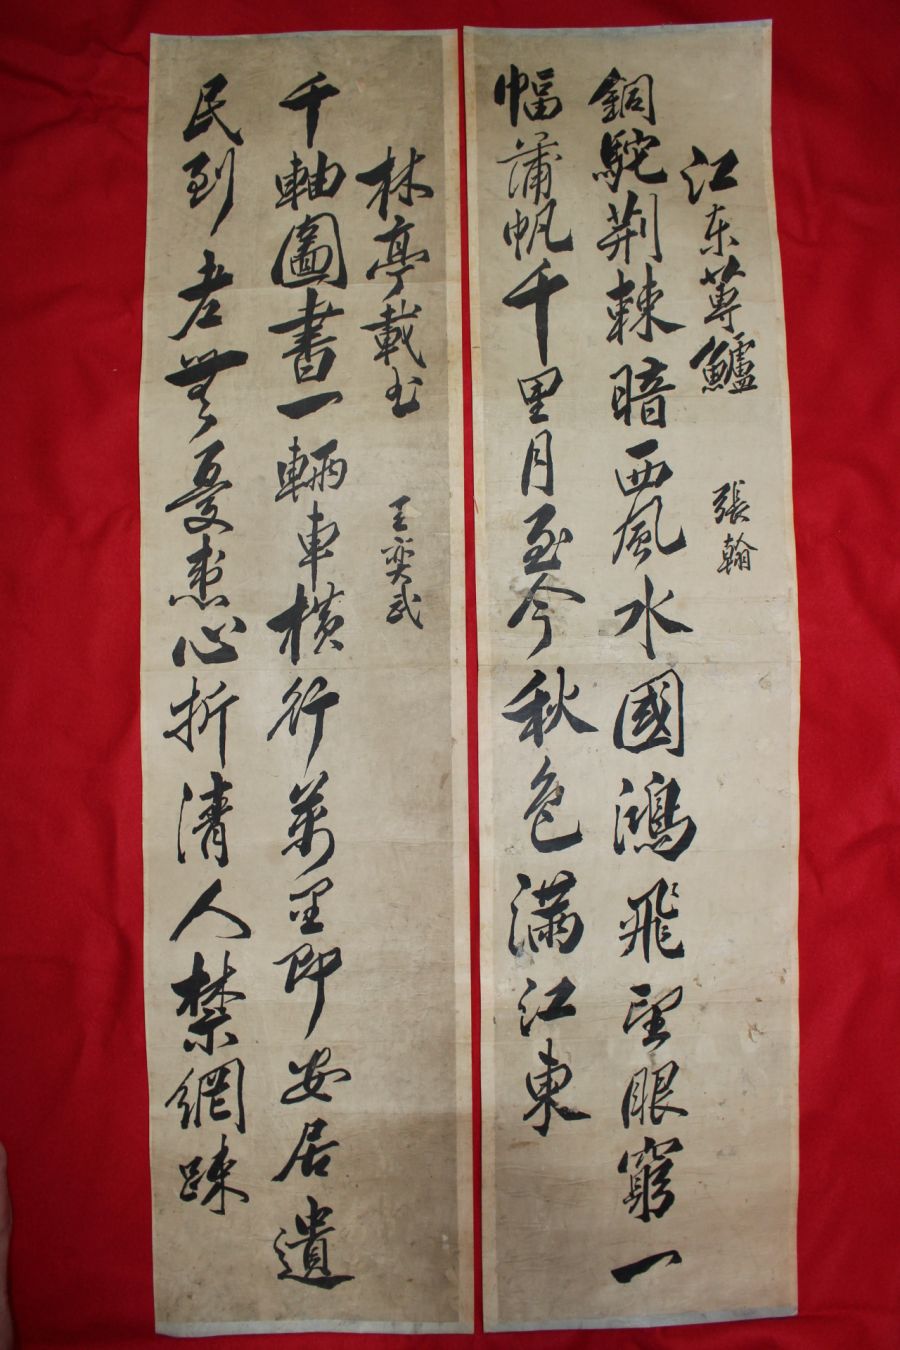 江东蓴鱸 張翰
銅駝荆棘暗西風水國鴻飛望眼窮一
幅蒲帆千里月至今秋色满江東
林亭載书 王奕武
千軸圖書一輛車橫行萬里即安居遺
民到老無憂患心折清人禁網踈